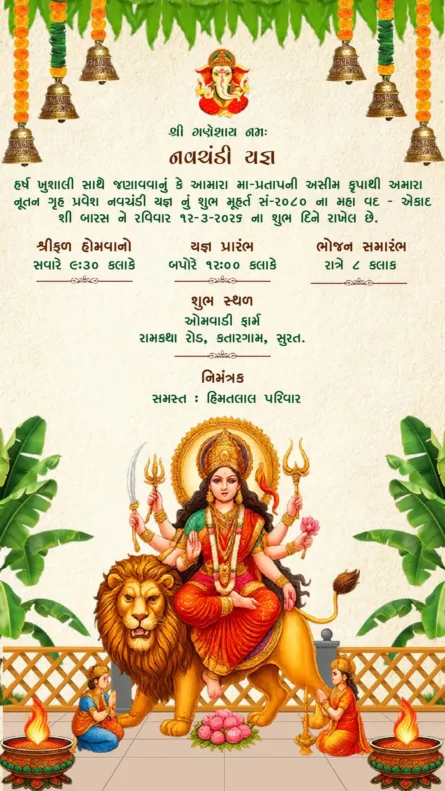 શ્રી ગણેશાય નમઃ
નવચંડી યજ્ઞ
હર્ષ ખુશાલી સાથે જણાવવાનું કે આમારા મા-પ્રતાપની અસીમ કૃપાથી અમારા
નૂતન ગૃહ પ્રવેશ નવચંડી યજ્ઞ નું શુભ મૂહર્ત સં-૨૦૮૦ ના મહા વદ - એકાદ
શી બારસ ને રવિવાર ૧૨-૩-૨૦૨૬ ના શુભ દિને રાખેલ છે.
શ્રીફળ હોમવાનો
સવારે ૯:૩૦ કલાકે
યજ્ઞ પ્રારંભ
બપોરે ૧૨:૦૦ કલાકે
ભોજન સમારંભ
રાત્રે ૮ કલાક
શુભ સ્થળ
ઓમવાડી ફાર્મ
રામકથા રોડ, કતારગામ, સુરત.
નિમંત્રક
સમસ્ત : હિમતલાલ પરિવાર